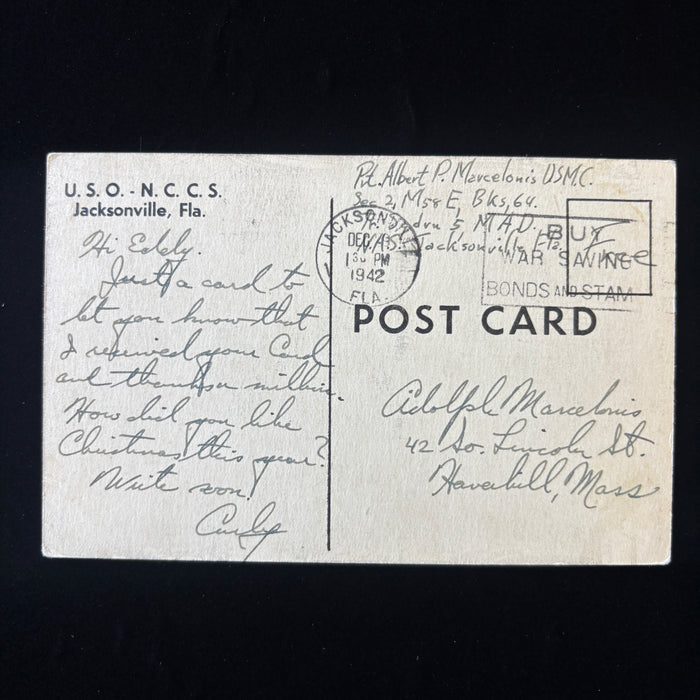 U.S.O. - N.C.C.S.
Jacksonville, Fla.
Hi Eddy.
Just a card to
let you know that
I received your Card
and thanks a million.
How did you like
Christmas this year?
Write soon
Curly
Pvt. Albert P. Marcelonis USMC.
Sec 2, M&E, Bks, 64.
drn 5, M.A.D.
N.A.S. Jacksonville Fla.
Free
JACKSONVILLE
DEC
1 30 PM
1942
FLA.
BUY
WAR SAVING
BONDS AND STAM
POST CARD
Adolph Marcelonis
42 So. Lincoln St.
Haverhill, Mass